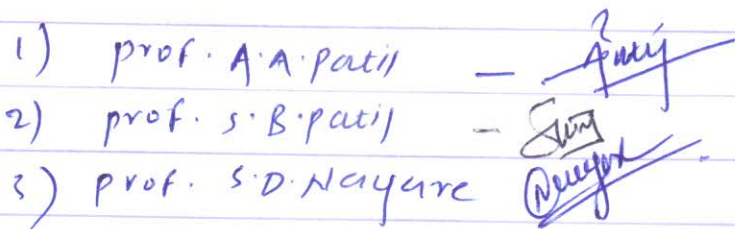 1) prof. A.A.Patil -
2) prof. S.B.patil -
3) prof. S.D.Nayare